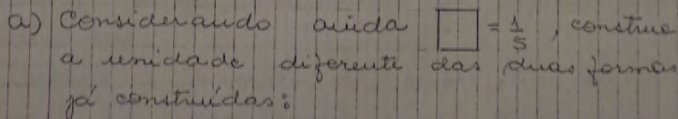 a) Considerando ainda □ = 1/5, construa
a unidade diferente das duas formas
já construídas: